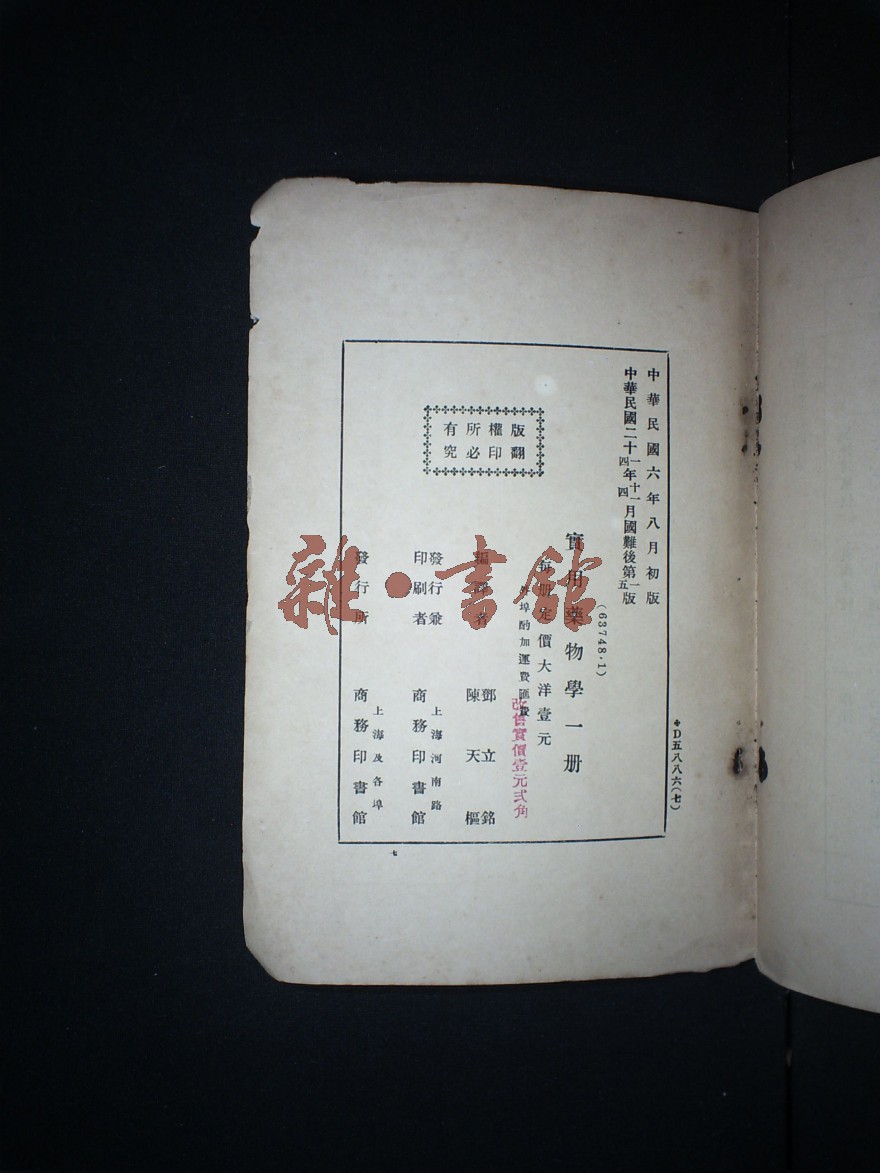 中華民國六年八月初版
中華民國二十一年十一月國難後第一版
四 四 五
(63748·1)
實用藥物學一册
每册定價大洋壹元
外埠酌加運費匯費
改售實價壹元弍角
版權所有
翻印必究
編譯者 鄧立銘
陳天樞
發行兼印刷者 上海河南路
商務印書館
發行所 上海及各埠
商務印書館
D五八八六(七)
七
雜·書館